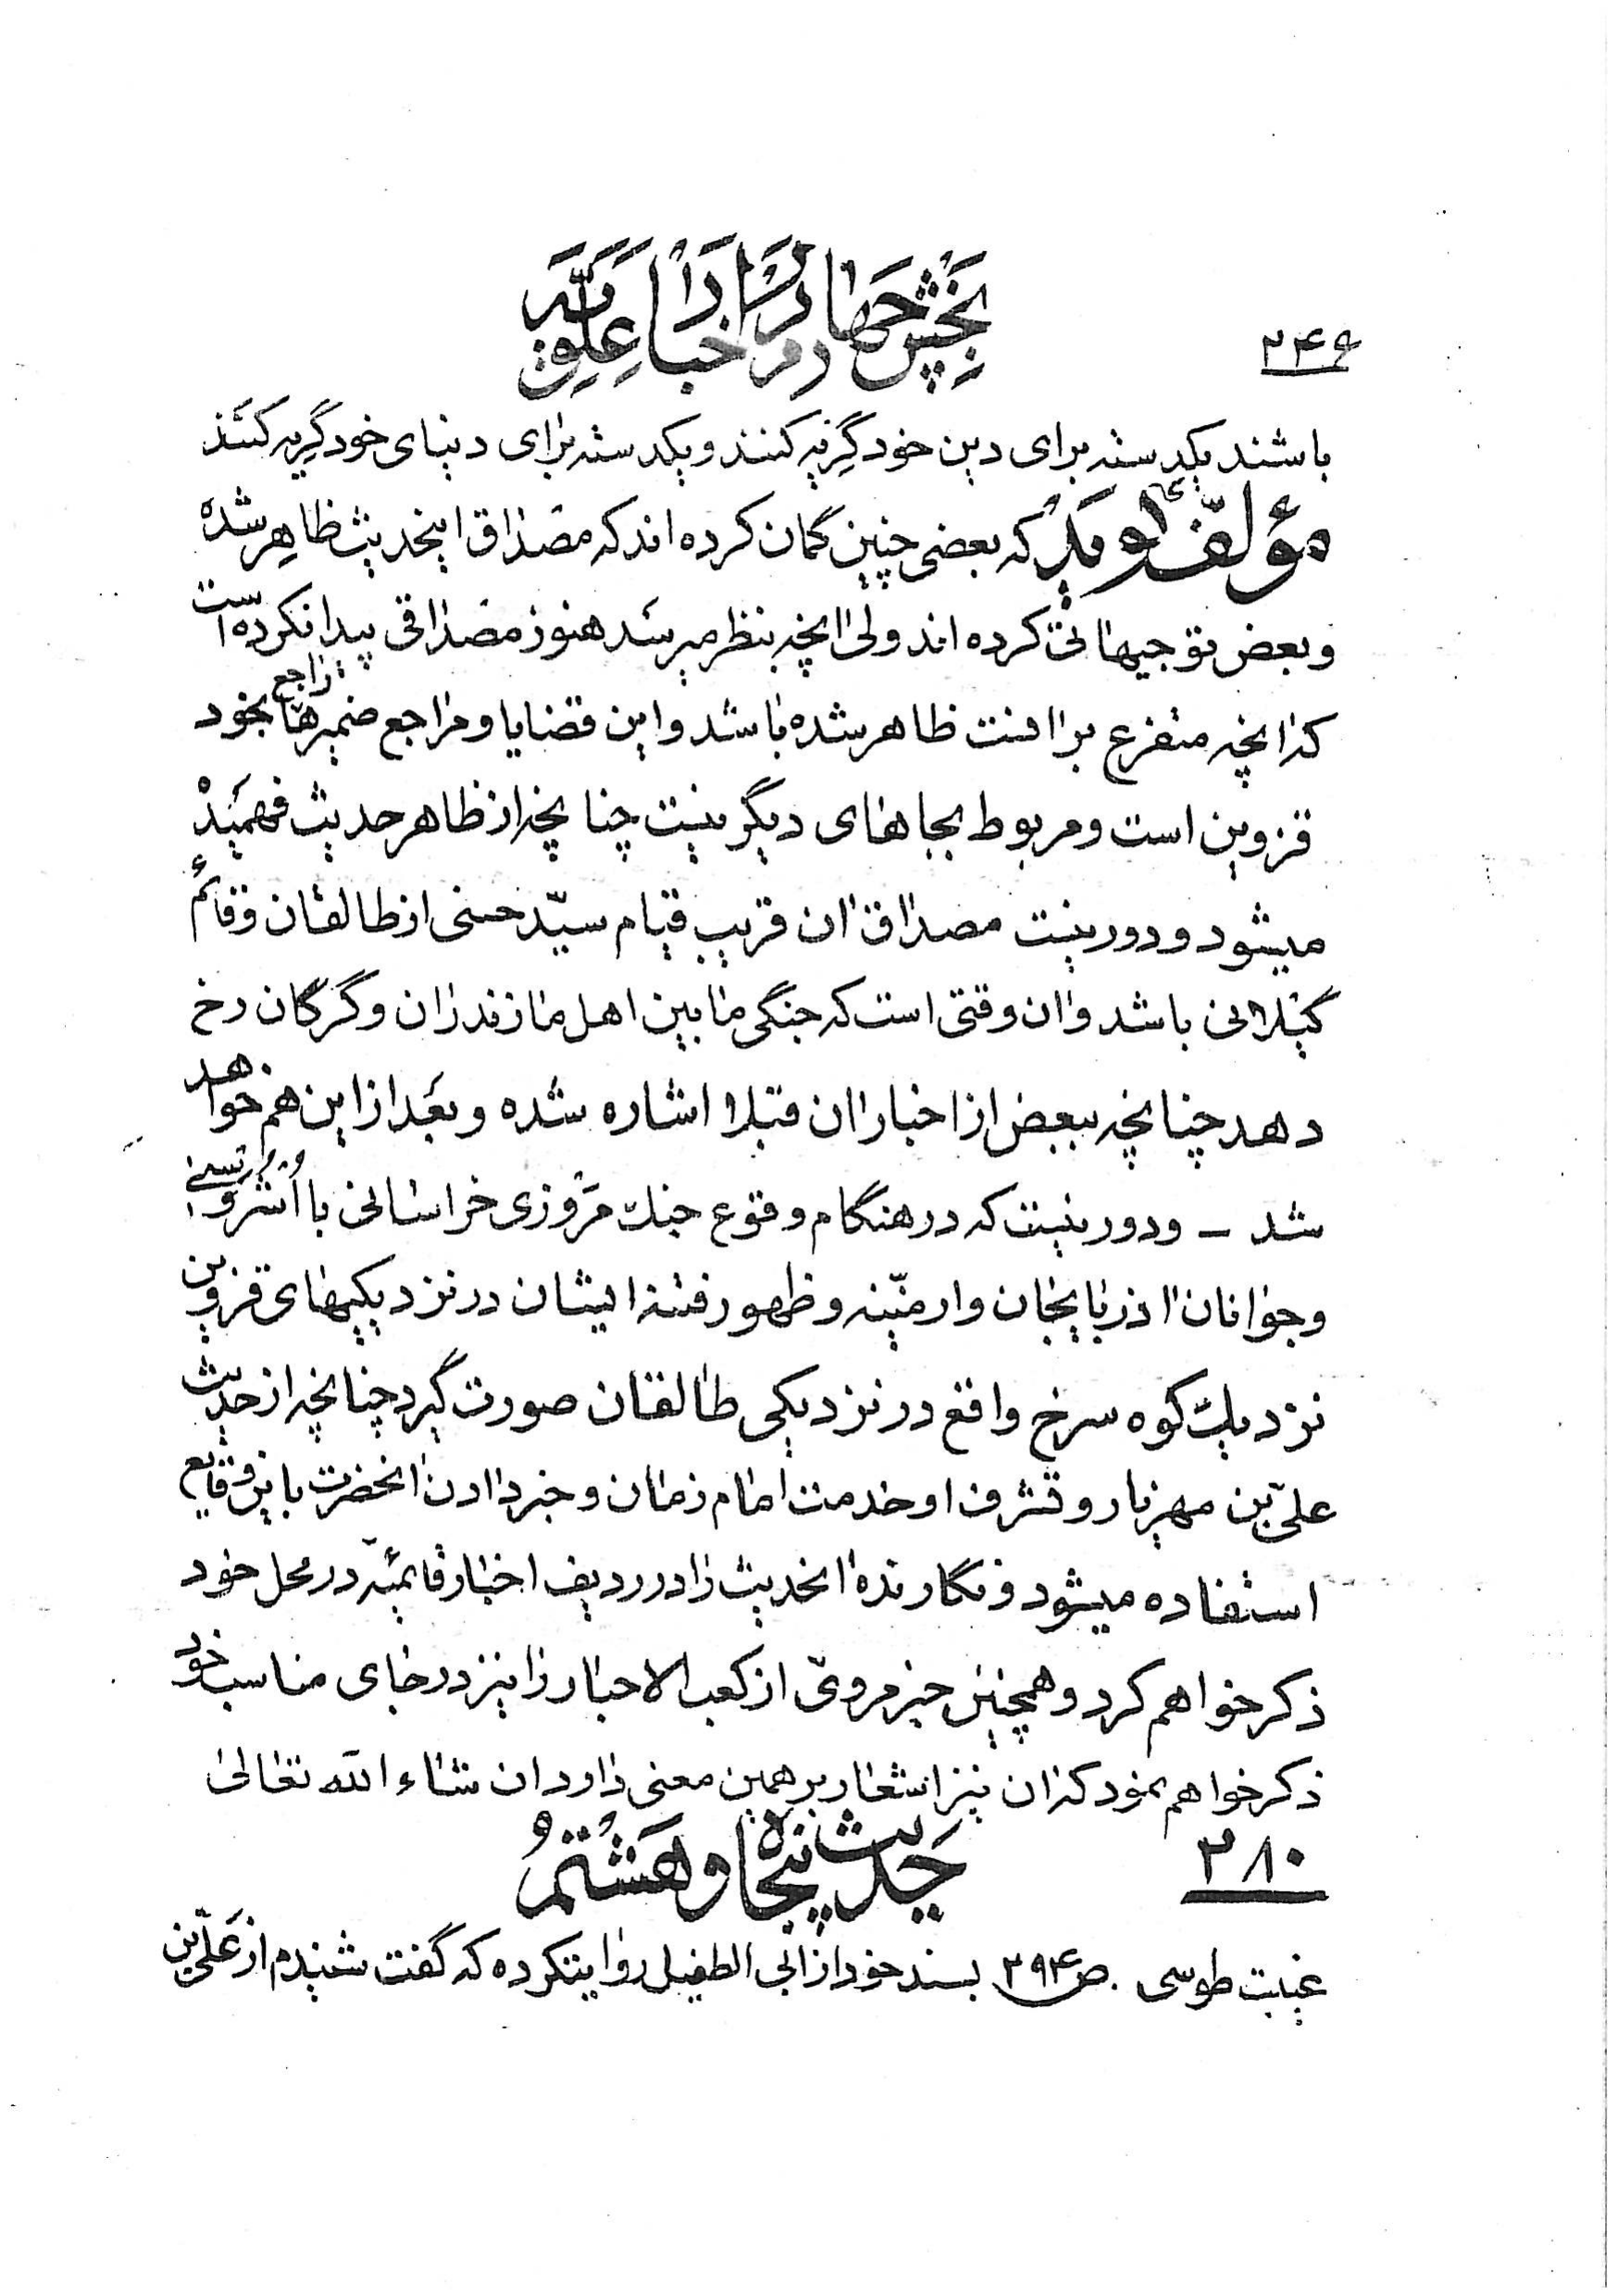 ۲۴۶
بخش چهارم در اخبار علویّه
باشند یکدسته برای دین خود گریه کنند و یکدسته برای دنیای خود گریه کنند
مؤلف گوید که بعضی چنین گمان کرده اند که مصداق اینحدیث ظاهر شده
و بعض توجیهاتی کرده اند ولی انچه بنظر میرسد هنوز مصداقی پیدا نکرده است
که انچه متفرع بر انست ظاهر شده باشد و این قضایا و مراجع ضمیرها راجع بخود
قزوین است و مربوط بجاهای دیگر نیست چنانچه از ظاهر حدیث فهمیده
میشود و دور نیست مصداق ان قریب قیام سیّد حسنی از طالقان و قائم
گیلانی باشد و ان وقتی است که جنگی مابین اهل مازندران و گرگان رخ
دهد چنانچه ببعض از اخبار ان قبلا اشاره شده و بعد از این هم خواهد
شد – و دور نیست که در هنگام وقوع جنک مروزی خراسانی با اُشروسنی
و جوانان اذربایجان و ارمنیّه و ظهور فتنه ایشان در نزدیکیهای قزوین
نزدیک کوه سرخ واقع در نزدیکی طالقان صورت گیرد چنانچه از حدیث
علیّ بن مهزیار و تشرف او خدمت امام زمان و خبر دادن انحضرت باین وقایع
استفاده میشود و نگارنده انحدیث را در ردیف اخبار قائمیّه در محل خود
ذکر خواهم کرد و همچنین خبر مرویّ از کعب الاحبار را نیز در جای مناسب خود
ذکر خواهم نمود که ان نیز اشعار بر همین معنی دارد ان شاء الله تعالی
۳۸۰
حدیث پنجاه و هشتم
غیبت طوسی ص ۲۹۴ بسند خود از ابی الطفیل روایتکرده که گفت شنیدم از علیّ بن